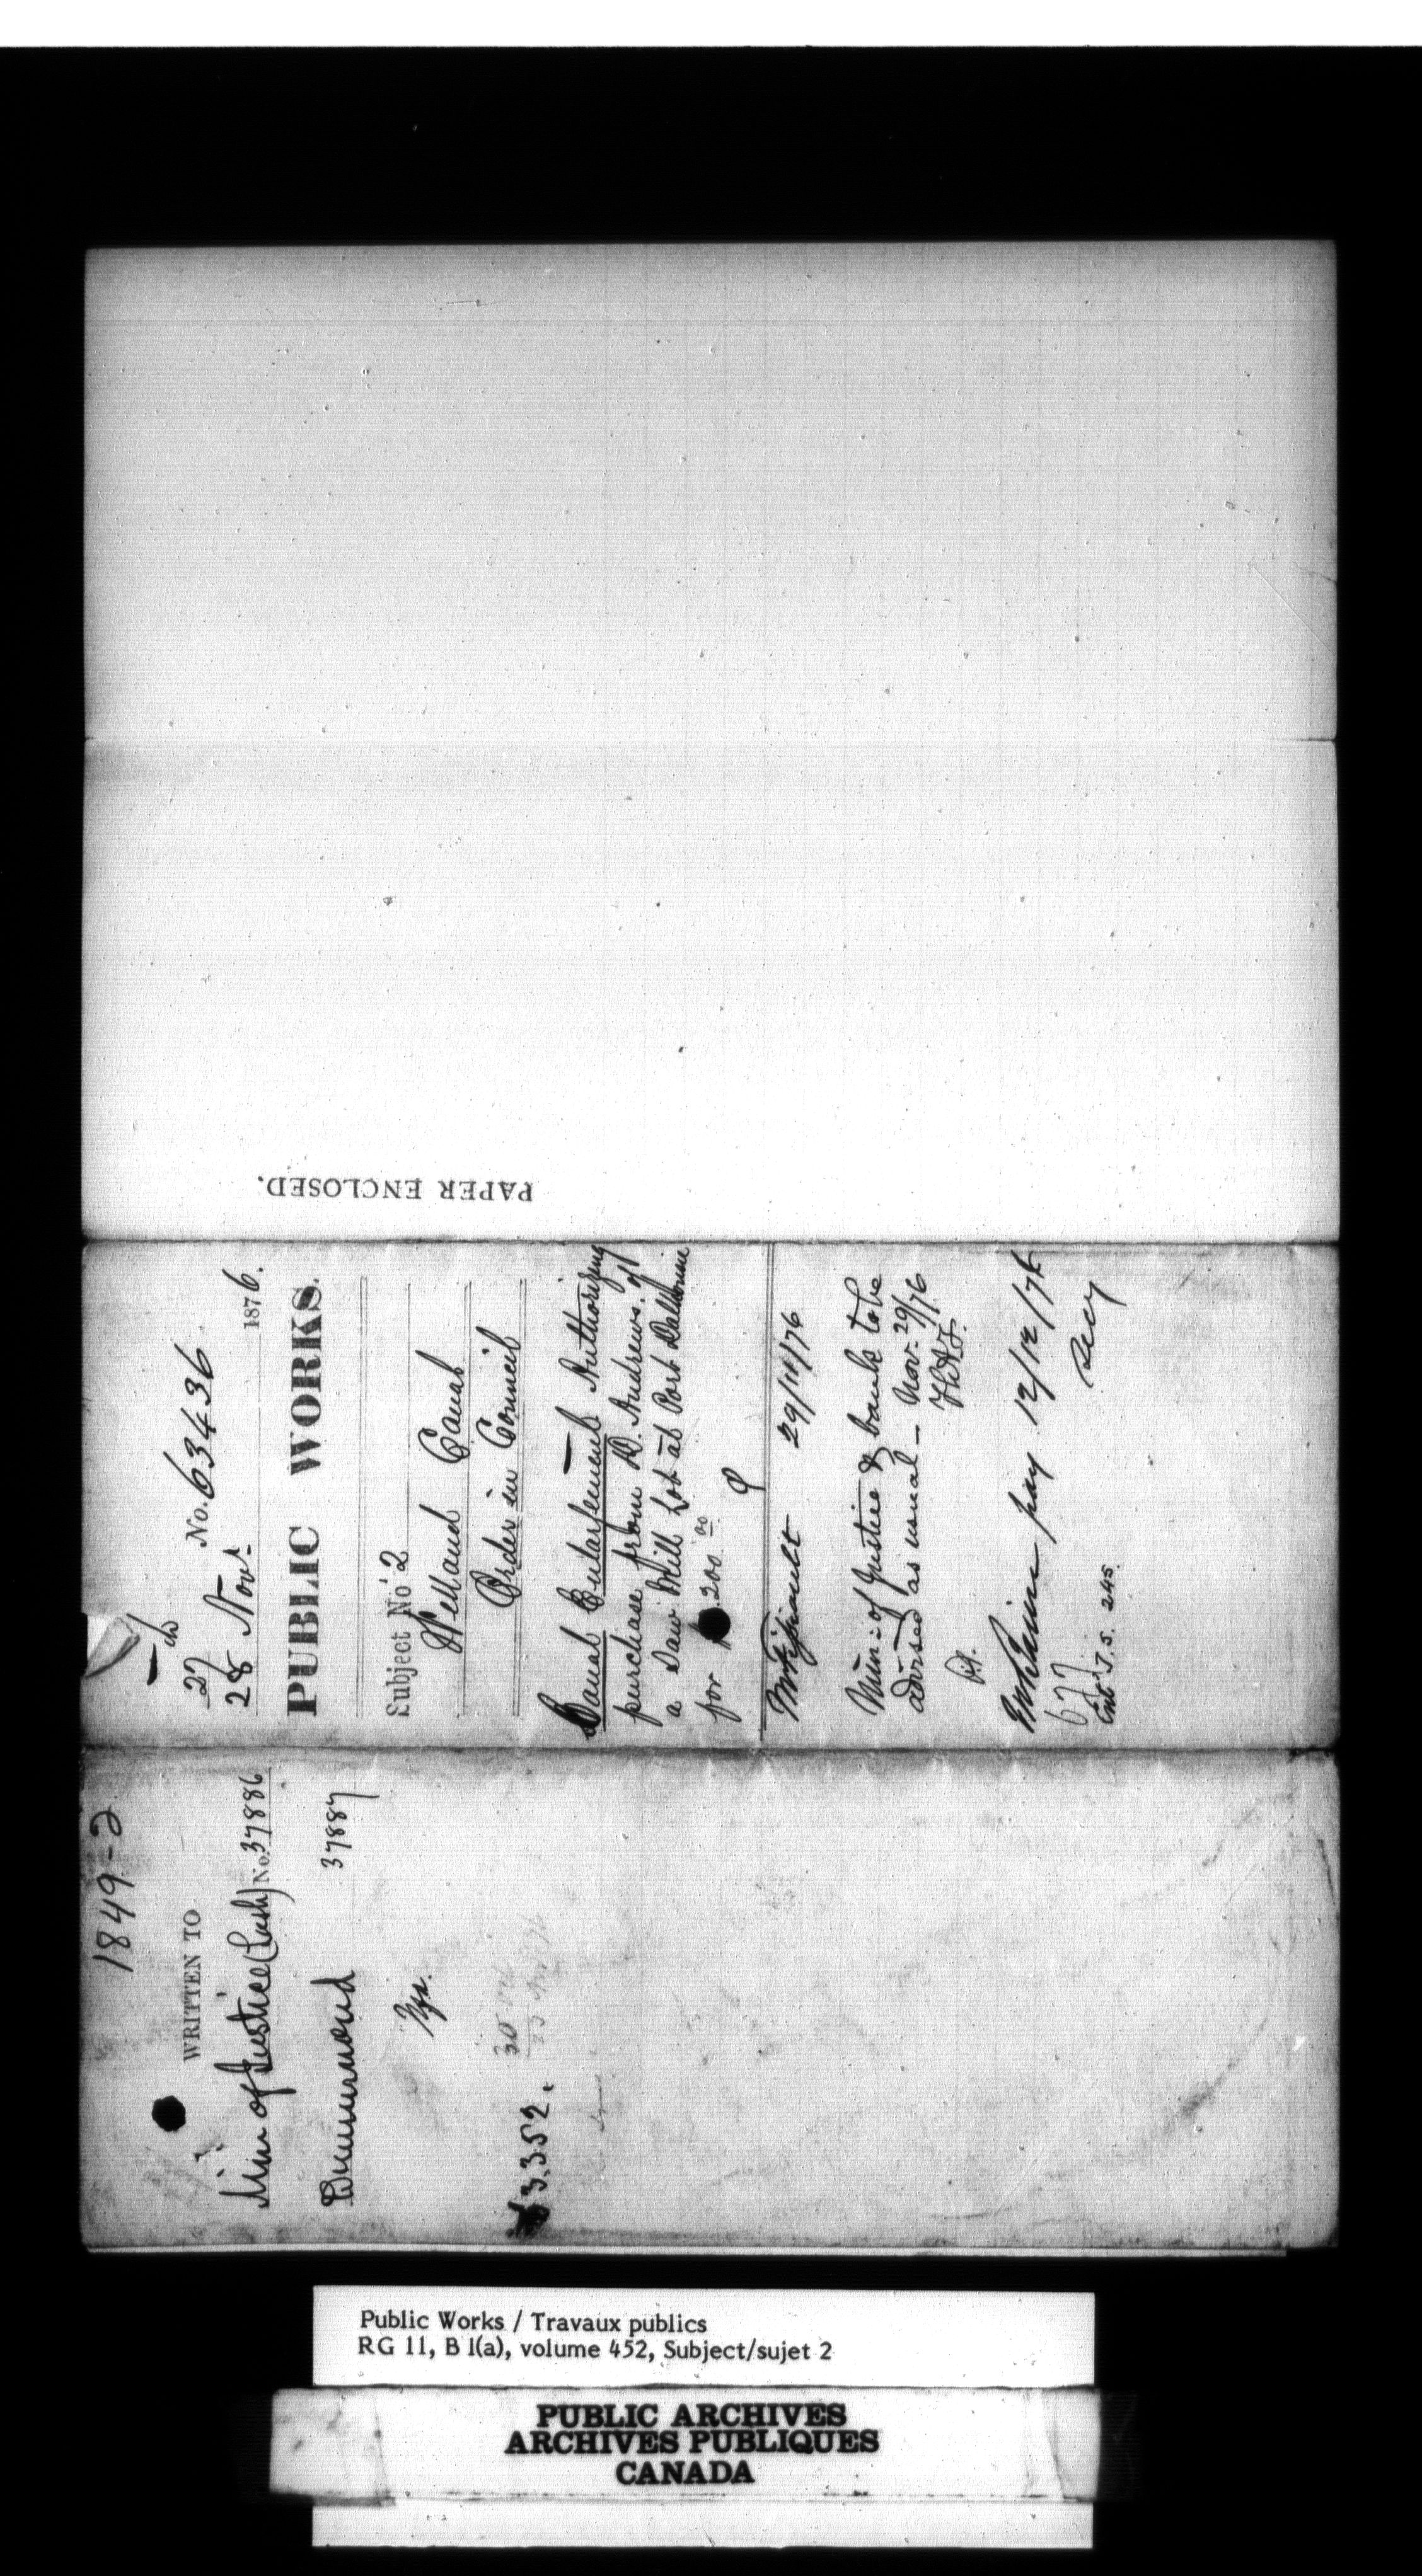 PAPER ENCLOSED.
27
No. 63436
28 Novr. 1876.
PUBLIC WORKS.
Subject No 2
Welland Canal
Order in Council
Canal Enlargement – Authorizing
purchase from D. Andrews. of
a Saw Mill Lot at Port Dalhousie
for 200.00
29/11/76
Min: of Justice & bank to be
advised as usual – Nov. 29/76
pay 12/12/76
Secy
677
Ent J.S. 245.
1849-2
WRITTEN TO
Min of Justice (Lash) No. 37886
Drummond 37887
3352.
Public Works / Travaux publics
RG 11, B 1(a), volume 452, Subject/sujet 2
PUBLIC ARCHIVES
ARCHIVES PUBLIQUES
CANADA